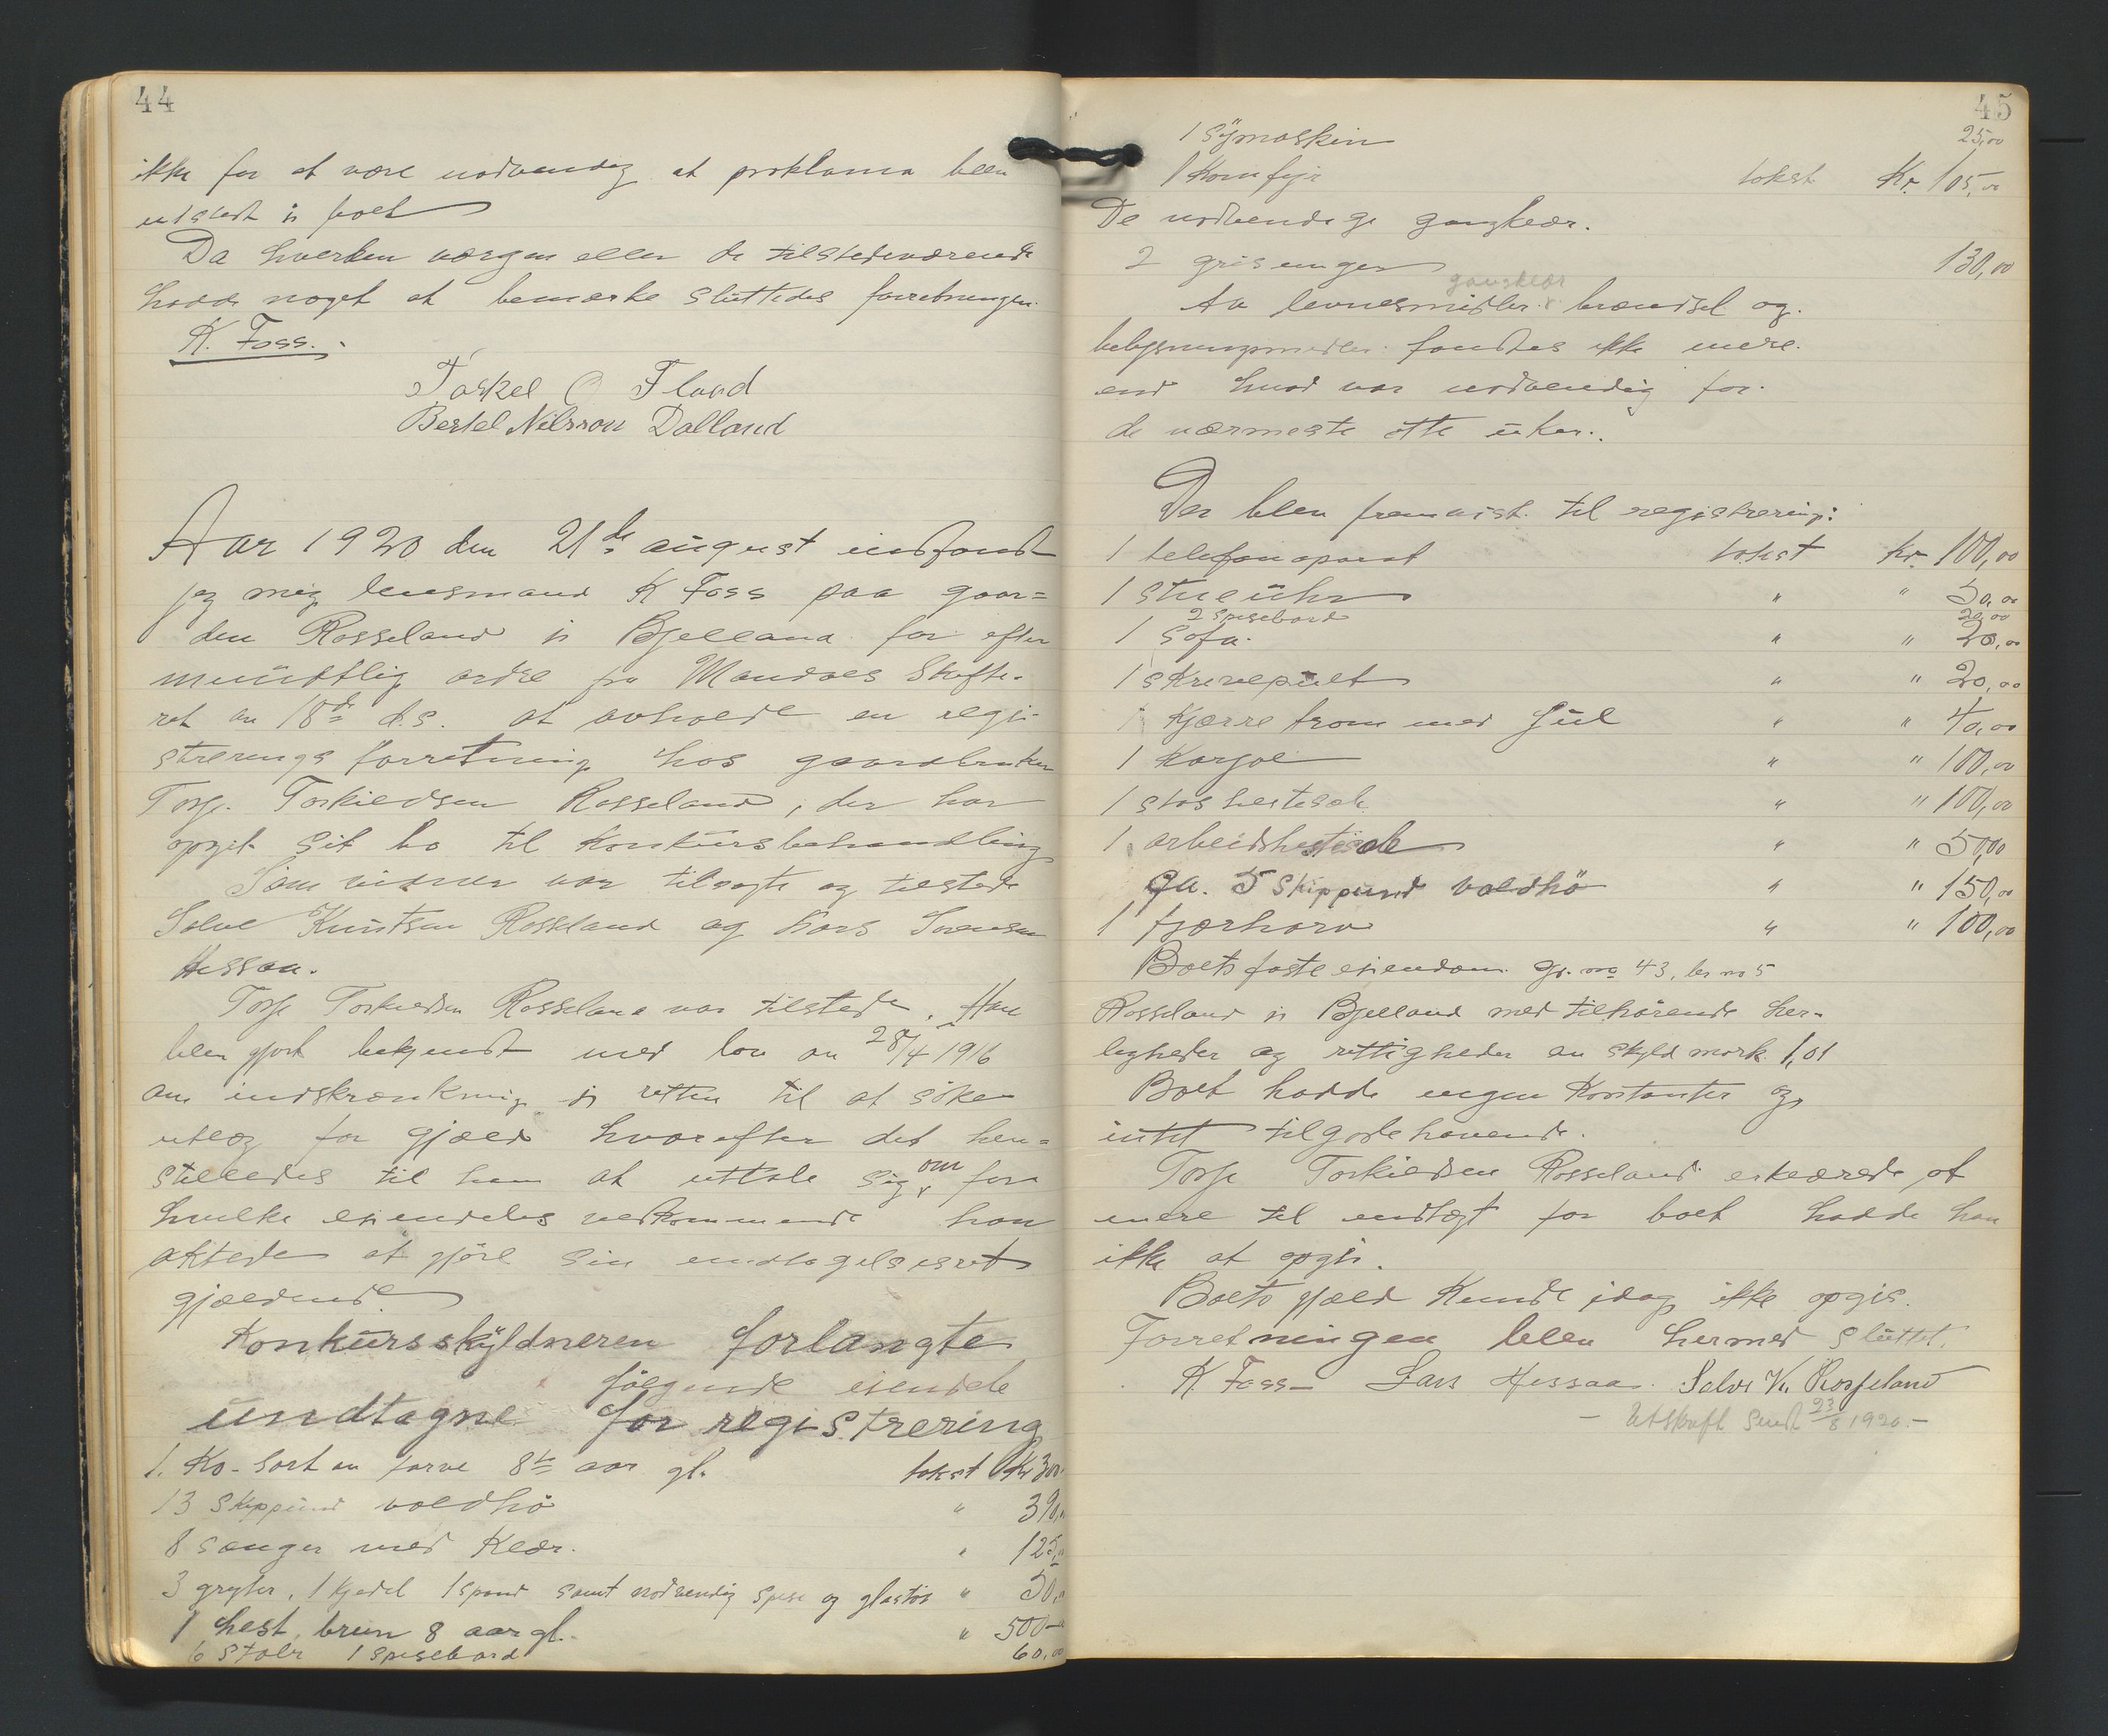 44
ikke for at være nødvendig at proklama blev
utstedt i boet
Da hverken værgen eller de tilstedeværende
hadde noget at bemærke sluttedes forretningen.
K. Foss.
Taskel O Fland
Bertel Nilsson Dalland
Aar 1920 den 21de august indfandt
jeg mig lensmand K Foss paa gaar=
den Rosseland i Bjelland for efter
mundtlig ordre fra Mandals Skifte-
ret av 18de d.s. at avholde en regi-
strerings forretning hos gaardbruker
Torje Torkildsen Rosseland, der har
opgit sit bo til konkursbehandling
Som vidner var tilsagte og tilstede
Salve Knutsen Rosseland og Lars Sørensen
Hessaa.
Torje Torkildsen Rosseland var tilstede. Han
blev gjort bekjendt med lov av 28/4 1916
om indskrænkning i retten til at søke
utlæg for gjæld hvorefter det hen=
stilledes til ham at uttale sig om for
hvilke eiendeles vedkommende han
aktede at gjøre sin undtagelsesret
gjældende
Konkursskyldneren forlangte
følgende eiendele
undtagne for registrering
1. Ko - sort av farve 8te aar gl. takst Kr 300.
13 Skippund voldhø " 390,00
8 senger med klær. " 125,00
3 gryter, 1 kjedel 1 spand samt nødvendig spise og glastøi " 50,00
1 hest, brun 8 aar gl. " 500-
6 stoler 1 spisebord 60,00
45
1 symaskin 25,00
1 Komfyr takst Kr. 105,00
De nødvendige gangklær.
2 grisunger 130,00
gangklær
Av levnesmidler brændsel og
belysningsmidler fandtes ikke mere
end hvad var nødvendig for
de nærmeste otte uker.
Der blev fremvist til registrering:
1 telefonaparat takst Kr. 100,00
1 stueuhr " " 50,00
2 spisebord 20,00
1 sofa " " 20,00
1 skrivepult " " 20,00
1 Kjærre from med hjul " " 40,00
1 Karjol " " 100,00
1 stas hestesele " " 100,00
1 arbeidshestesele " " 50,00
Ca. 5 skippund voldhø " " 150,00
1 fjærharv " " 100,00
Boets faste eiendom gr. no 43, br no 5
Rosseland i Bjelland med tilhørende her-
ligheder og rettigheder av skyld mark 1,01
Boet hadde ingen Kontanter og
intet tilgodehavende.
Torje Torkildsen Rosseland erklærede, at
mere til indtægt for boet hadde han
ikke at opgi.
Boets gjæld kunde idag ikke opgis.
Forretningen blev hermed sluttet.
K. Foss - Lars Hessaa. Salve K. Rosseland
- Utskrift sendt 23/8 1920.-